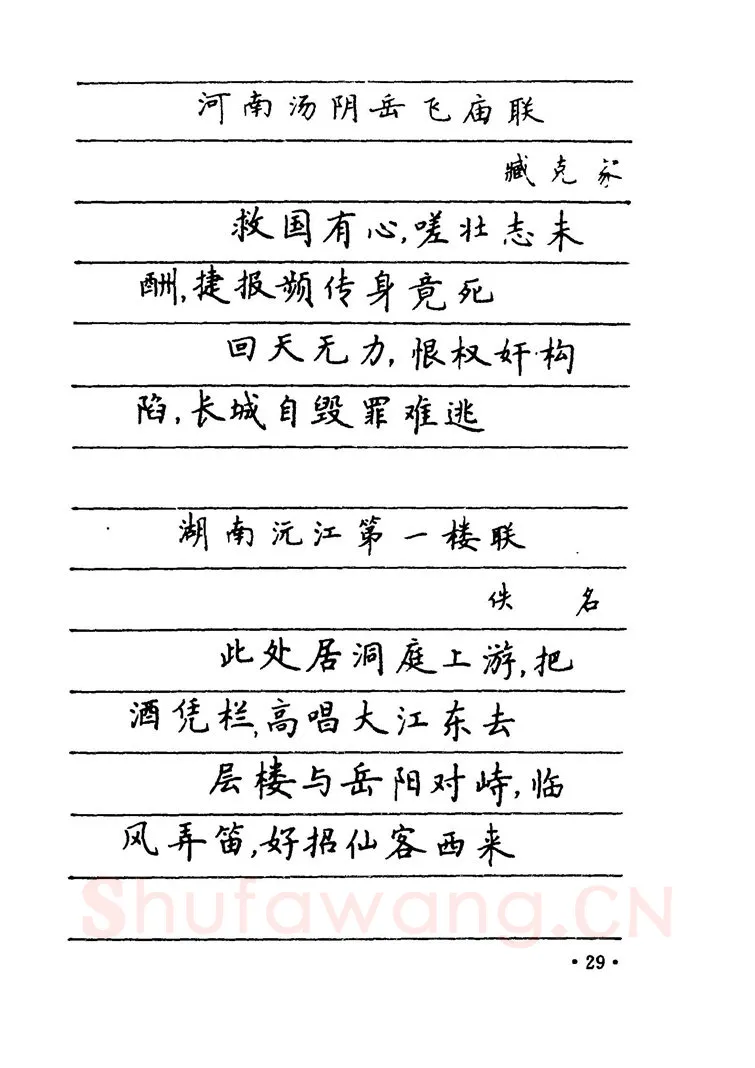 河南汤阴岳飞庙联
臧克家
救国有心,嗟壮志未
酬,捷报频传身竟死
回天无力,恨权奸构
陷,长城自毁罪难逃
湖南沅江第一楼联
佚 名
此处居洞庭上游,把
酒凭栏,高唱大江东去
层楼与岳阳对峙,临
风弄笛,好招仙客西来
Shufawang.CN
·29·